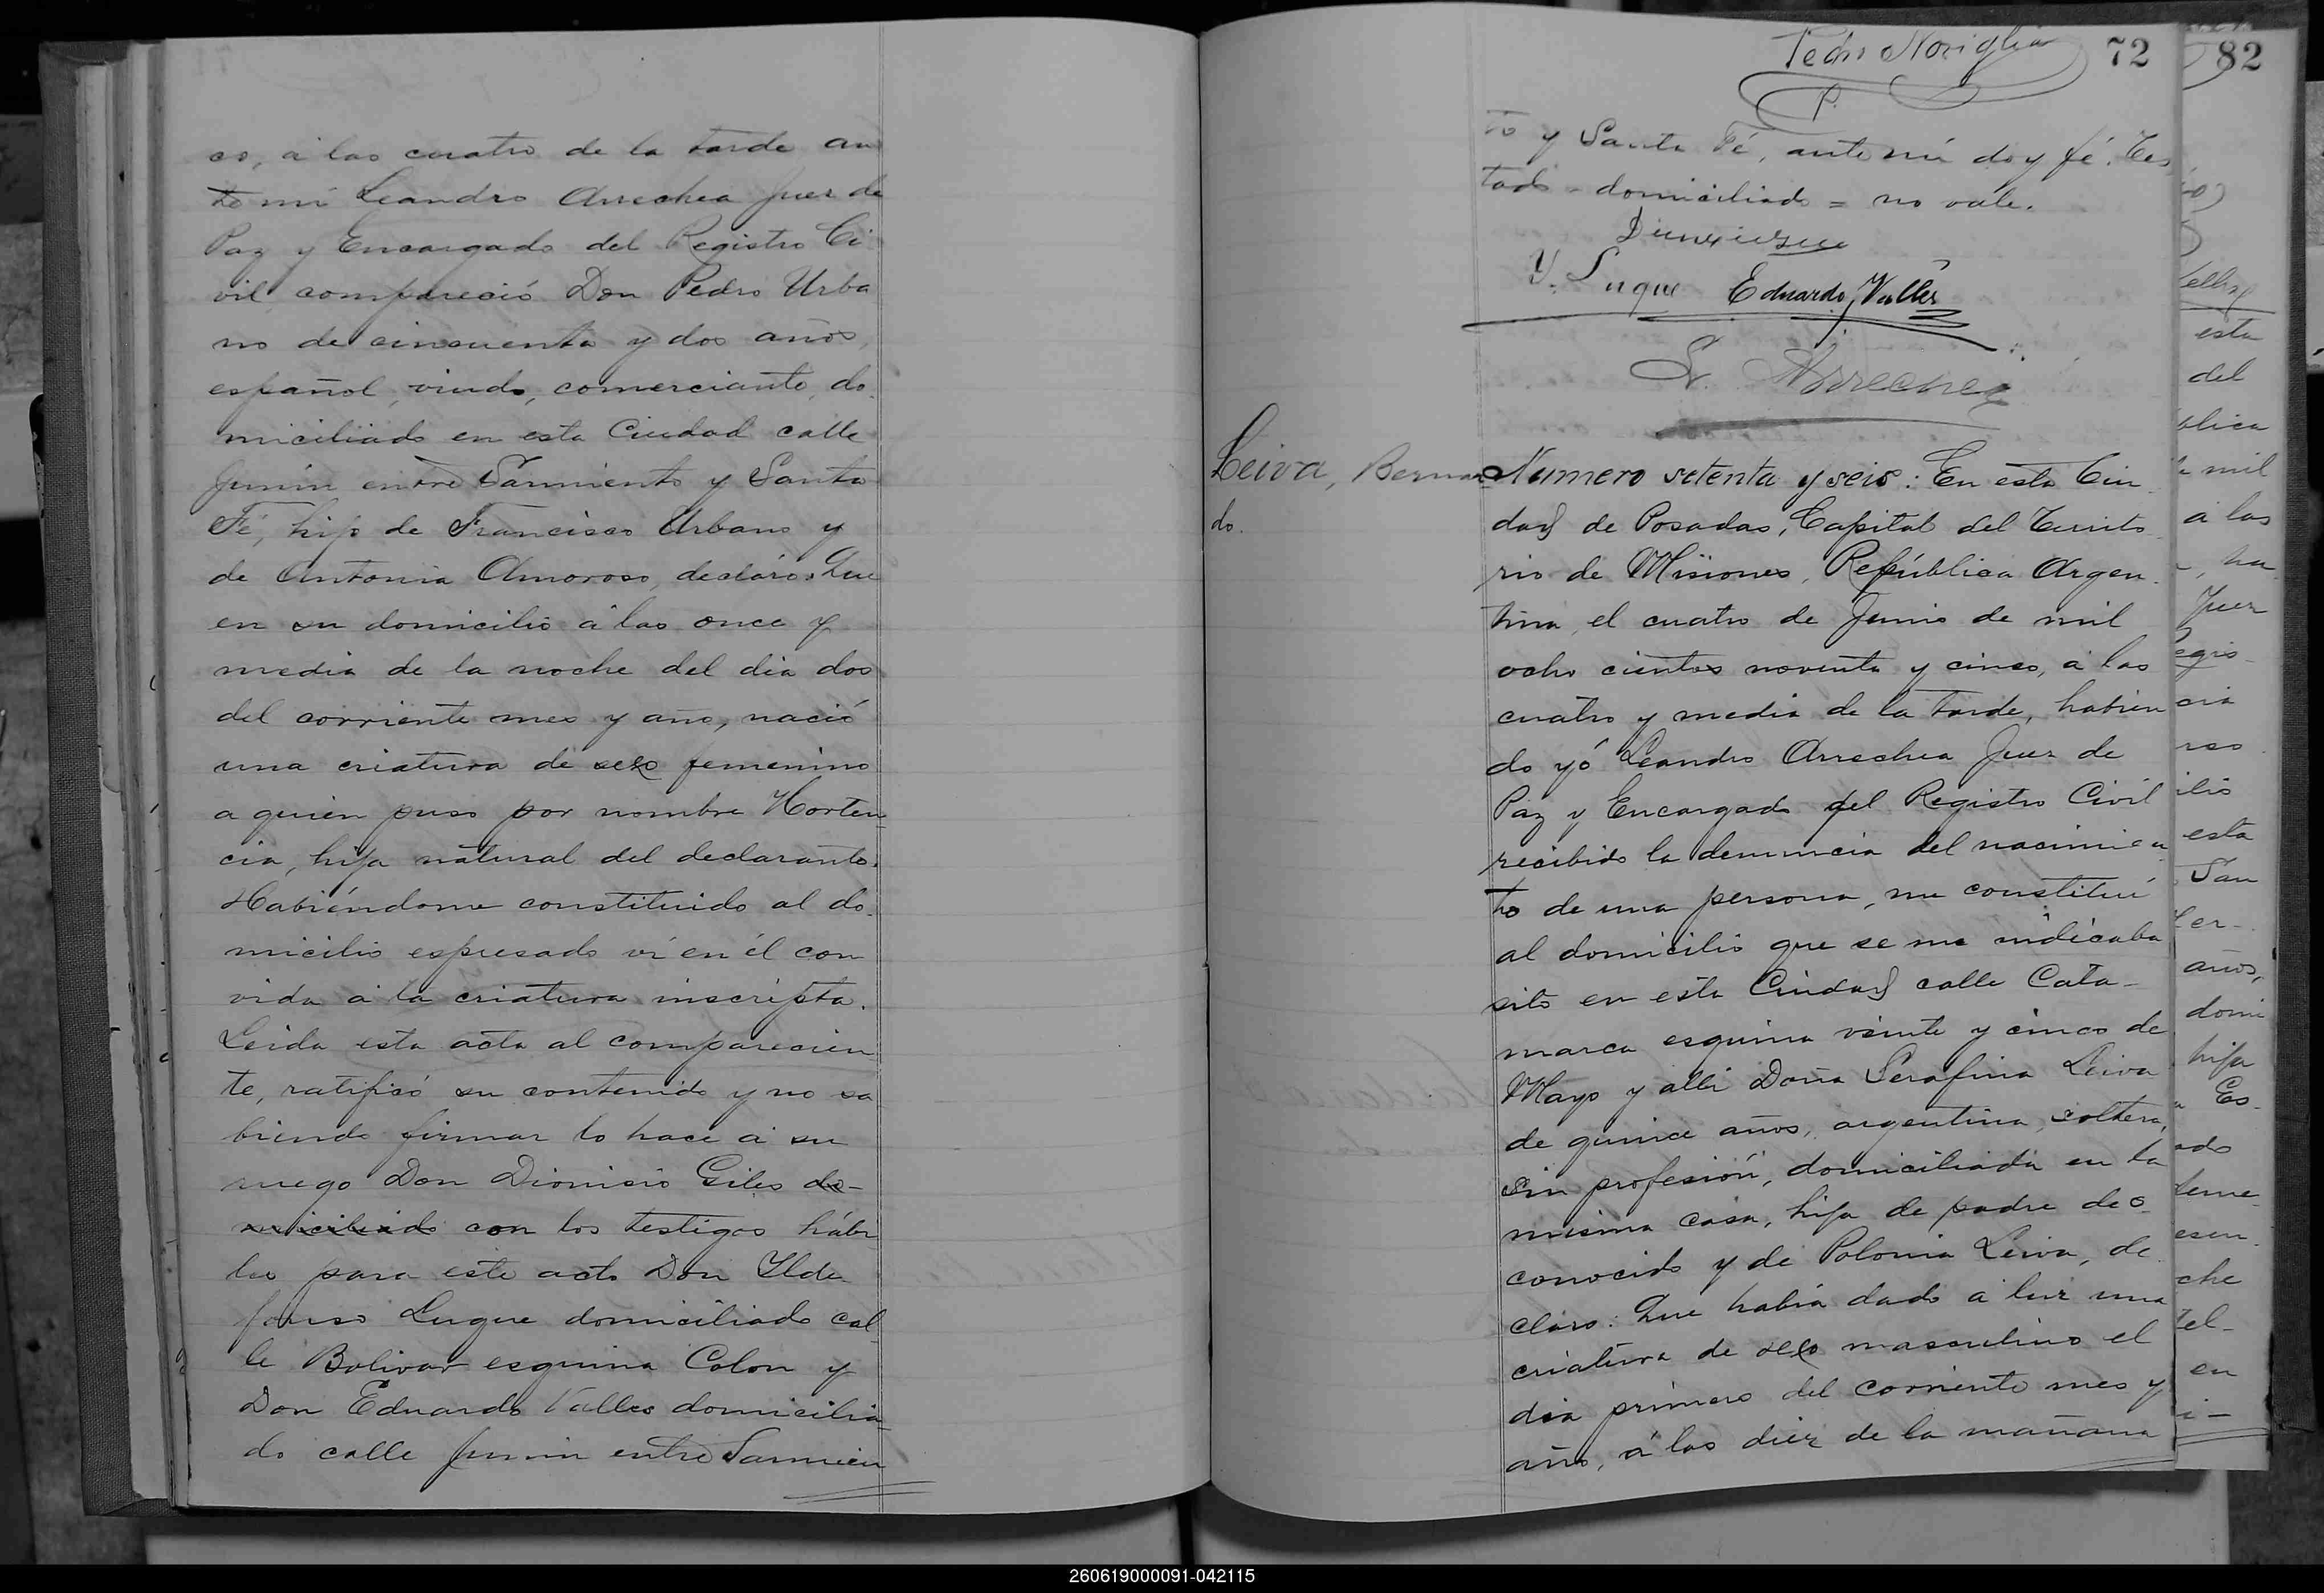 co, á las cuatro de la tarde an
te mi Leandro Arrechea Juez de
Paz y Encargado del Registro Ci
vil, compareció Don Pedro Urba
no de cincuenta y dos años,
español, viudo, comerciante, do
miciliado en esta Ciudad calle
Junin entre Sarmiento y Santa
Fé, hijo de Francisco Urbano y
de Antonia Amoroso, declaró: Que
en su domicilio á las once y
media de la noche del dia dos
del corriente mes y año, nació
una criatura de sexo femenino
a quien puso por nombre Horten
cia, hija natural del declarante.
Habiéndome constituido al do
micilio espresado ví en él con
vida á la criatura inscripta.
Leida esta acta al comparecien
te, ratificó su contenido y no sa
biendo firmar lo hace á su
ruego Don Dionisio Giles do-
miciliado con los testigos hábi
les para este acto Don Ylde
fonso Luque domiciliado cal
le Bolivar esquina Colon y
Don Eduardo Valles domicilia
do calle Junin entre Sarmien
Pedro Noriglia
72
to y Santa Fé, ante mi doy fé. Tes
tado - domiciliado = no vale.
Y. Luque Eduardo Valles
L. Arrechea
Leiva, Bernar
do.
Numero setenta y seis: En esta Ciu
dad de Posadas, Capital del Territo
rio de Misiones, República Argen
tina, el cuatro de Junio de mil
ocho cientos noventa y cinco, á las
cuatro y media de la tarde, habien
do yó Leandro Arrechea Juez de
Paz y Encargado del Registro Civil
recibido la denuncia del nacimien
to de una persona, me constituí
al domicilio que se me indicaba
sito en esta Ciudad calle Cata-
marca esquina veinte y cinco de
Mayo y alli Doña Serafina Leiva
de quince años, argentina, soltera,
sin profesión, domiciliada en la
misma casa, hija de padre des
conocido y de Polonia Leiva, de
claro: Que habia dado a luz una
criatura de sexo masculino el
dia primero del corriente mes y
año, á las diez de la mañana
82
esta
del
blica
mil
a las
ha
Juez
egis
cia
ilio
esta
San
er-
años,
domi
hija
Es
ado
feme
che
el-
en
260619000091-042115